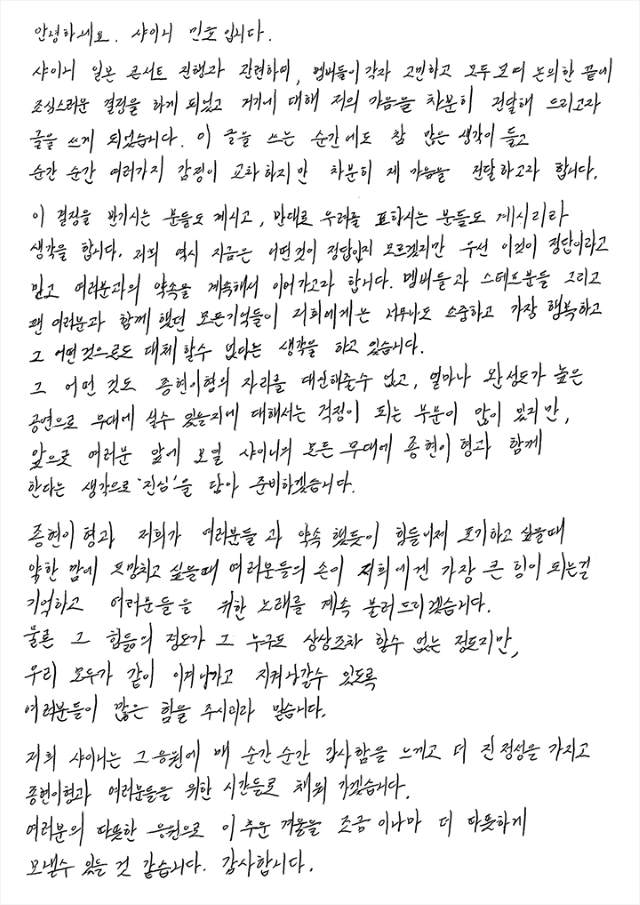 안녕하세요. 샤이니 민호입니다.
샤이니 일본 콘서트 진행과 관련하여, 멤버들이 각자 고민하고 모두 모여 논의한 끝에
조심스러운 결정을 하게 되었고 거기에 대해 저의 마음을 차분히 전달해 드리고자
글을 쓰게 되었습니다. 이 글을 쓰는 순간에도 참 많은 생각이 들고
순간 순간 여러가지 감정이 교차하지만 차분히 제 마음을 전달하고자 합니다.
이 결정을 반기시는 분들도 계시고, 반대로 우려를 표하시는 분들도 계시리라
생각을 합니다. 저희 역시 지금은 어떤것이 정답인지 모르겠지만 우선 이것이 정답이라고
믿고 여러분과의 약속을 계속해서 이어가고자 합니다. 멤버들과 스태프분들 그리고
팬 여러분과 함께 했던 모든기억들이 저희에게는 너무나도 소중하고 가장 행복하고
그 어떤것으로도 대체 할수 없다는 생각을 하고 있습니다.
그 어떤 것도 종현이형의 자리를 대신해줄수 없고, 얼마나 완성도가 높은
공연으로 무대에 설수 있을지에 대해서는 걱정이 되는 부분이 많이 있지만,
앞으로 여러분 앞에 보일 샤이니의 모든 무대에 종현이형과 함께
한다는 생각으로 '진심'을 담아 준비하겠습니다.
종현이형과 저희가 여러분들과 약속 했듯이 힘들어져 포기하고 싶을때
약한 맘에 도망치고 싶을때 여러분들의 손이 저희에겐 가장 큰 힘이 되는걸
기억하고 여러분들을 위한 노래를 계속 불러드리겠습니다.
물론 그 힘듦의 정도가 그 누구도 상상조차 할수 없는 정도지만,
우리 모두가 같이 이겨나가고 지켜나갈수 있도록
여러분들이 많은 힘을 주시리라 믿습니다.
저희 샤이니는 그 응원에 매 순간순간 감사함을 느끼고 더 진정성을 가지고
종현이형과 여러분들을 위한 시간들로 채워 가겠습니다.
여러분의 따뜻한 응원으로 이 추운 겨울을 조금이나마 더 따뜻하게
보낼수 있을 것 같습니다. 감사합니다.